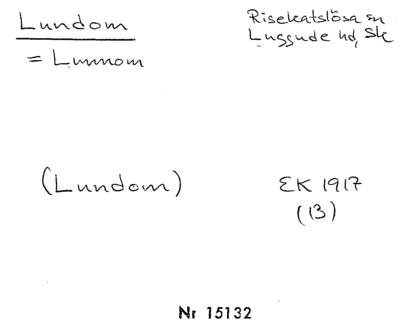 Lundom
Risekatslösa sn
= Lunnom
Luggude hd, Sk
(Lundom)
EK 1917
(13)
Nr 15132